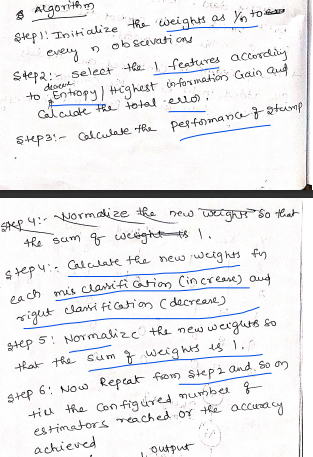 Algorithm
Step 1: Initialize the weights as 1/n to
every n observations
Step2:- select the 1 features according
to Entropy | Highest information Gain and
Calculate the total error.
Step3:- Calculate the performance of stump
Step 4:- Normalize the new weights so that
the sum of weights is 1.
Step4:- Calculate the new weights for
each misclassification (increase) and
right classification (decrease)
Step 5: Normalize the new weights so
that the sum of weights is 1.
Step 6: Now Repeat from step 2 and so on
till the configured number of
estimators reached or the accuracy
achieved
output